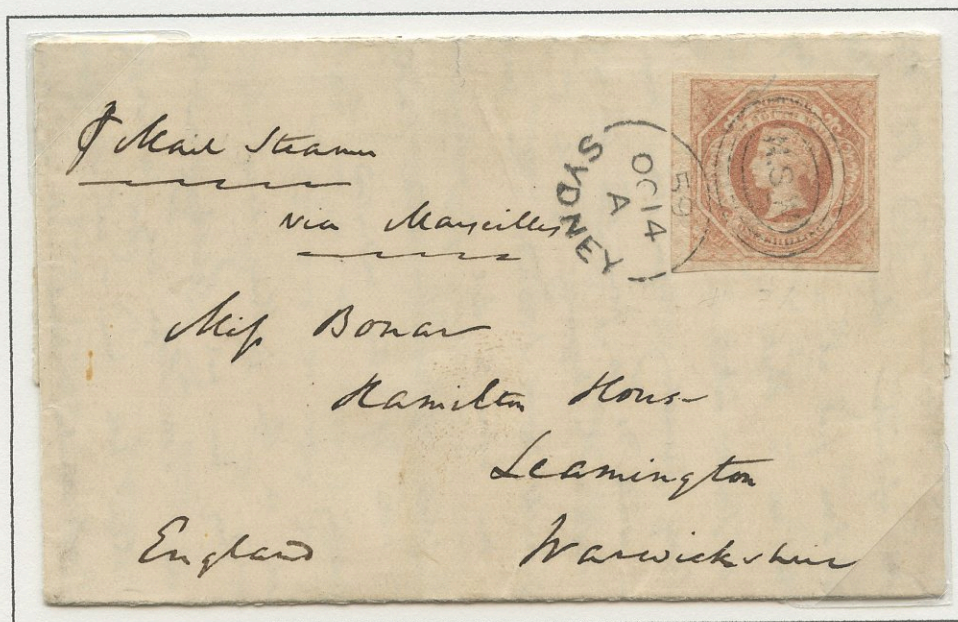 ⅌ Mail Steamer
via Marseilles
SYDNEY
A
OC 14
59
POSTAGE
NEW SOUTH WALES
ONE SHILLING
N.S.W
Miſs Bonar
Hamilton House
Leamington
England Warwickshire